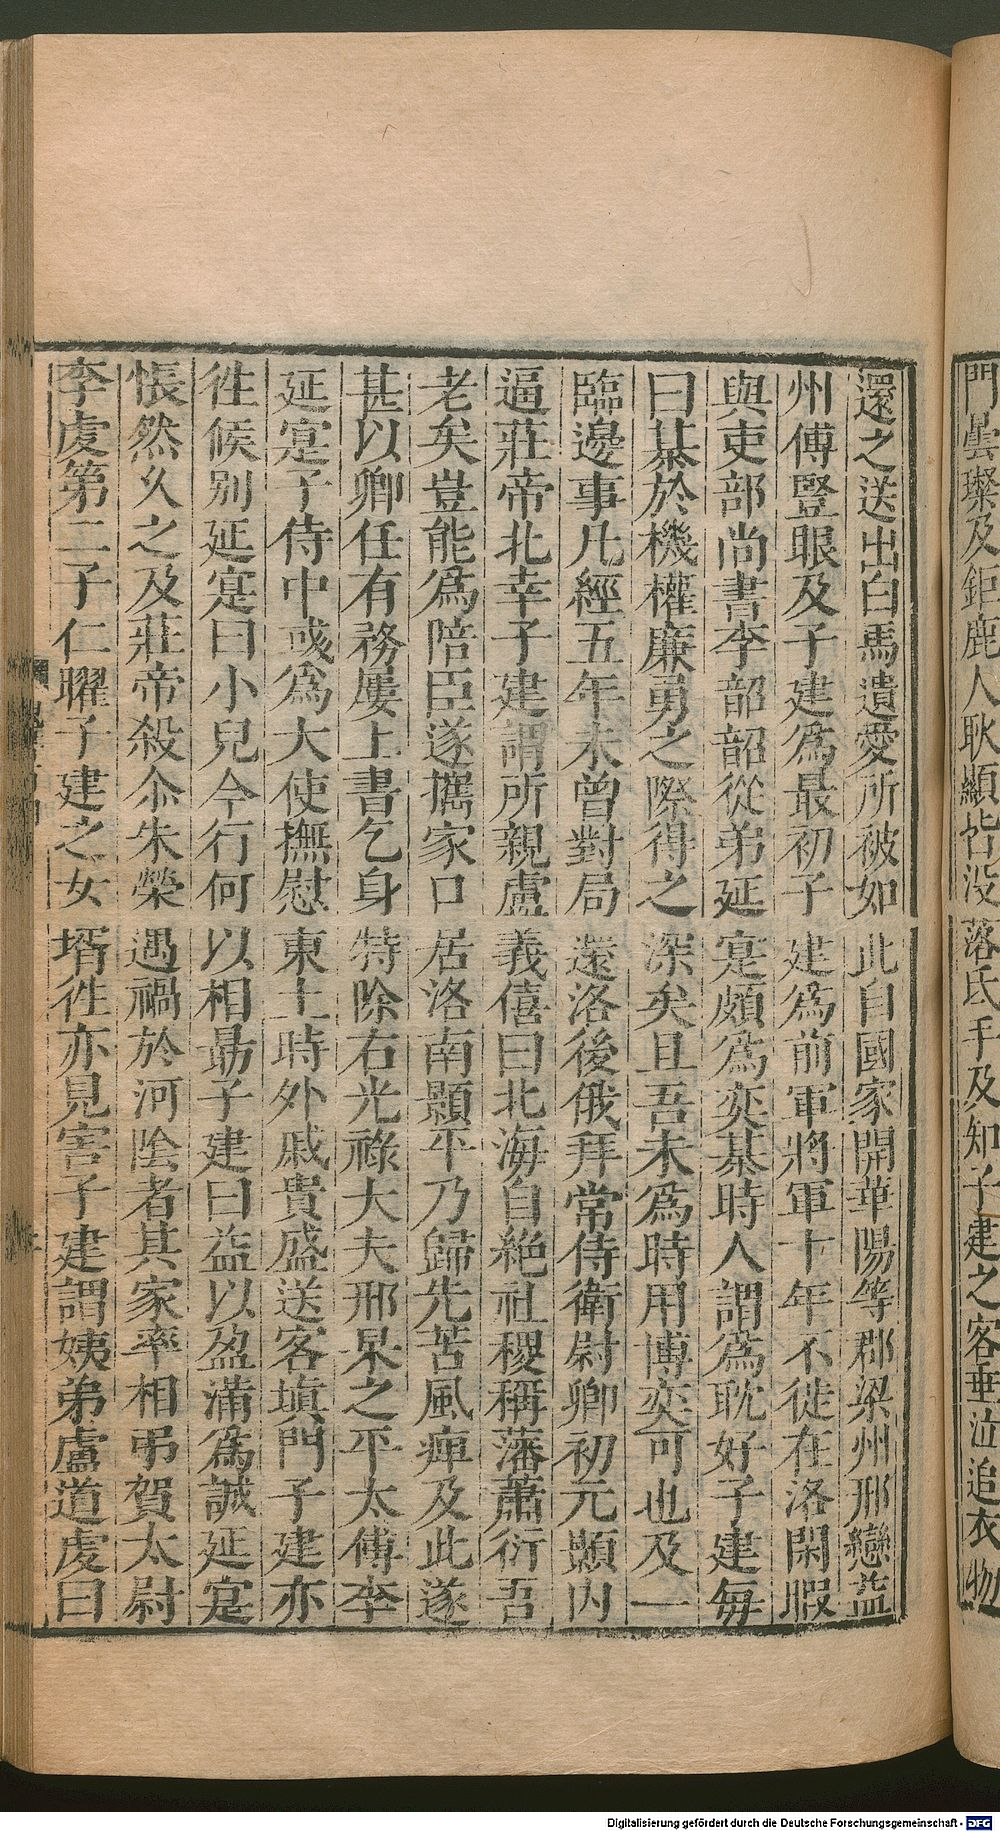 門曇璨及鉅鹿人耿顯皆没落氐手及知子建之客垂泣追衣物
還之送出白馬遺愛所被如此自國家開華陽等郡梁州邢巒益
州傅豎眼及子建爲最初子建爲前軍將軍十年不徙在洛閑暇
與吏部尚書李韶韶從弟延寔頗爲奕棊時人謂爲耽好子建每
曰棊於機權廉勇之際得之深矣且吾未爲時用博奕可也及一
臨邊事凡經五年未曾對局還洛後俄拜常侍衛尉卿初元顥内
逼莊帝北幸子建謂所親盧義僖曰北海自絶社稷稱藩蕭衍吾
老矣豈能爲陪臣遂攜家口居洛南顥平乃歸先苦風痺及此遂
甚以卿任有務屢上書乞身特除右光祿大夫邢杲之平太傅李
延寔子侍中彧爲大使撫慰東土時外戚貴盛送客塡門子建亦
徃候别延寔曰小兒今行何以相勗子建曰益以盈滿爲誠延寔
悵然久之及莊帝殺尒朱榮遇禍於河陰者其家率相弔賀太尉
李虔第二子仁曜子建之女壻徃亦見害子建謂姨弟盧道虔曰
Digitalisierung gefördert durch die Deutsche Forschungsgemeinschaft - DFG